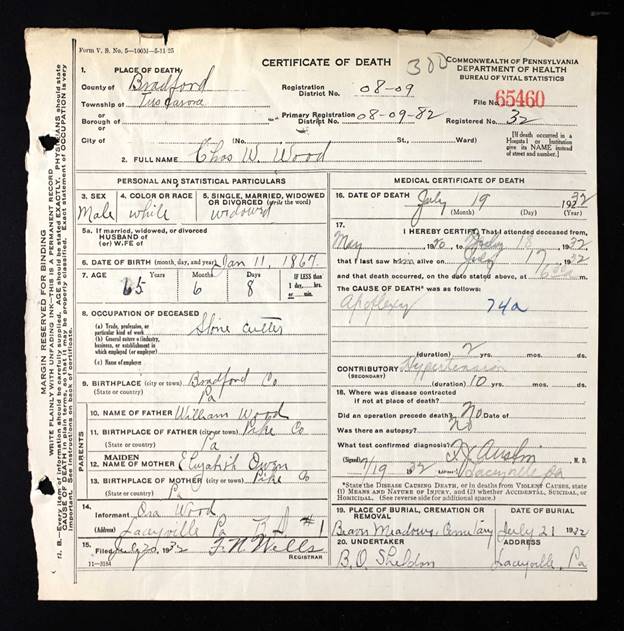 Form V. S. No. 5-100M-5-11-25
CERTIFICATE OF DEATH
300
COMMONWEALTH OF PENNSYLVANIA
DEPARTMENT OF HEALTH
BUREAU OF VITAL STATISTICS
1. PLACE OF DEATH
County of Bradford
Township of Tuscarora
or
Borough of
or
City of
Registration
District No. 08-09
Primary Registration
District No. 08-09-82
File No. 65460
Registered No. 32
(No. St., Ward)
[If death occurred in a
Hospital or Institution
give its NAME instead
of street and number.]
2. FULL NAME Chas W. Wood
PERSONAL AND STATISTICAL PARTICULARS
3. SEX
Male
4. COLOR OR RACE
white
5. SINGLE, MARRIED, WIDOWED
OR DIVORCED (write the word)
widowed
5a. If married, widowed, or divorced
HUSBAND of
(or) WIFE of
6. DATE OF BIRTH (month, day, and year) Jan 11, 1867
7. AGE
65 6 8
Days
IF LESS than
1 day, hrs.
or min.
8. OCCUPATION OF DECEASED
(a) Trade, profession, or
particular kind of work Stone cutter
(b) General nature of industry,
business, or establishment in
which employed (or employer)
(c) Name of employer
9. BIRTHPLACE (city or town) Bradford Co
(State or country) Pa
PARENTS
10. NAME OF FATHER William Wood
11. BIRTHPLACE OF FATHER (city or town) Pike Co
(State or country) Pa
12. MAIDEN NAME OF MOTHER Elizabeth Owen
13. BIRTHPLACE OF MOTHER (city or town) Pike Co
(State or country) Pa
14. Informant Ora Wood
(Address) Laceyville Pa R D #1
15. Filed July 20, 1932 F. N. Wells
REGISTRAR
11-3184
MEDICAL CERTIFICATE OF DEATH
16. DATE OF DEATH July 19 1932
(Month) (Day) (Year)
17.
I HEREBY CERTIFY, That I attended deceased from
May 1920, to July 18 1932
that I last saw him alive on July 17 1932
and that death occurred, on the date stated above, at 6:30 a m.
The CAUSE OF DEATH* was as follows:
Apoplexy 74a
(duration) 2 yrs. mos. ds.
CONTRIBUTORY Hypertension
(SECONDARY)
(duration) 10 yrs. mos. ds.
18. Where was disease contracted
if not at place of death?
Did an operation precede death? No Date of
Was there an autopsy? No
What test confirmed diagnosis?
(Signed) Austin M. D.
7/19 1932 Laceyville Pa
*State the DISEASE CAUSING DEATH, or in deaths from VIOLENT CAUSES, state
(1) MEANS AND NATURE OF INJURY, and (2) whether ACCIDENTAL, SUICIDAL, or
HOMICIDAL. (See reverse side for additional space.)
19. PLACE OF BURIAL, CREMATION OR REMOVAL
DATE OF BURIAL
Beaver Meadows Cemetary July 21 1932
20. UNDERTAKER
ADDRESS
B. O. Sheldon Laceyville, Pa
MARGIN RESERVED FOR BINDING
WRITE PLAINLY WITH UNFADING INK—THIS IS A PERMANENT RECORD
N. B.—Every item of information should be carefully supplied. AGE should be stated EXACTLY. PHYSICIANS should state
CAUSE OF DEATH in plain terms, so that it may be properly classified. Exact statement of OCCUPATION is very
important. See instructions on back of certificate.